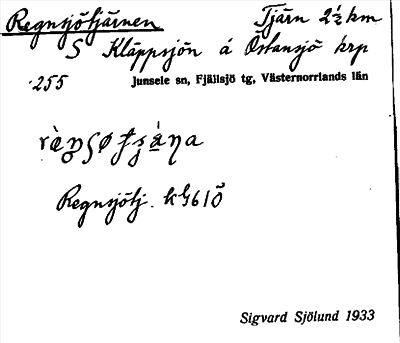 Regnsjötjärnen Tjärn 2½ km
S Kläppsjön å Östansjö krp
255 Junsele sn, Fjällsjö tg, Västernorrlands län
Regnsjötj.
Sigvard Sjölund 1933